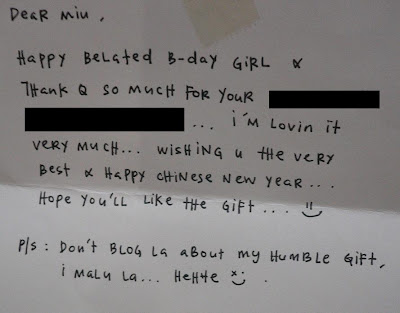 Dear Miu,
Happy Belated B-day Girl &
Thank Q so much for your
... i'm lovin it
very much... wishing u the very
best & happy chinese new year...
Hope you'll like the gift... !!
P/s : Don't blog la about my humble gift,
i malu la... Hehee